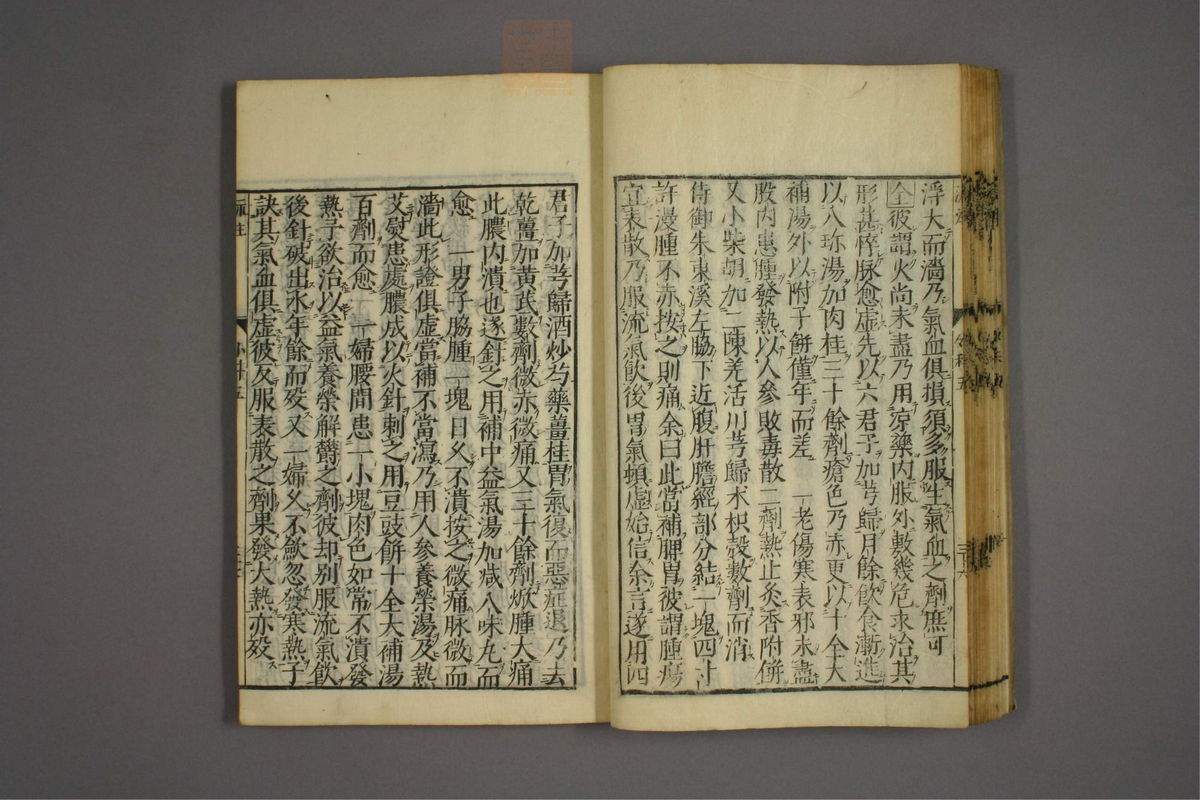 浮大而濇乃氣血俱損須多服生氣血之劑庶可
全彼謂火尚未盡乃用凉藥内服外敷幾危求治其
形甚悴脉愈虚先以六君子加芎歸月餘飲食漸進
以八珎湯加肉桂三十餘劑瘡色乃赤更以十全大
補湯外以附子餅僅年而差 一老傷寒表邪未盡
股内患腫發熱以人參敗毒散二劑熱止灸香附餅
又小柴胡加二陳羌活川芎歸术枳殼數劑而消
侍御朱東溪左脇下近腹肝膽經部分結一塊四寸
許漫腫不赤按之則痛余曰此當補脾胃彼謂腫瘍
宜表散乃服流氣飲後胃氣頓虚始信余言遂用四
君子加芎歸酒炒芍藥薑桂胃氣復而惡症退乃去
乾薑加黄芪數劑微赤微痛又三十餘劑焮腫大痛
此膿内潰也遂針之用補中益氣湯加减八味丸而
愈 一男子脇腫一塊日久不潰按之微痛脉微而
濇此形證俱虚當補不當瀉乃用人參養榮湯及熱
艾熨患處膿成以火針刺之用豆豉餅十全大補湯
百劑而愈 一婦腰間患一小塊肉色如常不潰發
熱予欲治以益氣養榮解鬱之劑彼却别服流氣飲
後針破出水年餘而殁又一婦久不歛忽發寒熱予
訣其氣血俱虚彼反服表散之劑果發大熱亦殁